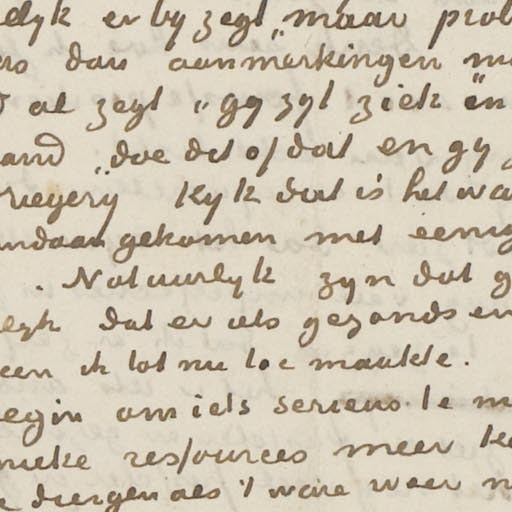 elyk er by zegt "maar prob
ers dan aanmerkingen ma
al zegt "gy zyt ziek en
and "doe dit of dat en gy
riegery Kyk dat is het wa
andaan gekomen met eenig
. Natuurlyk zyn dat g
elyk dat er iets gezonds en
een ik tot nu toe maakte.
egin om iets serieus te m
nieke ressources meer te
dingen als 't ware weer n